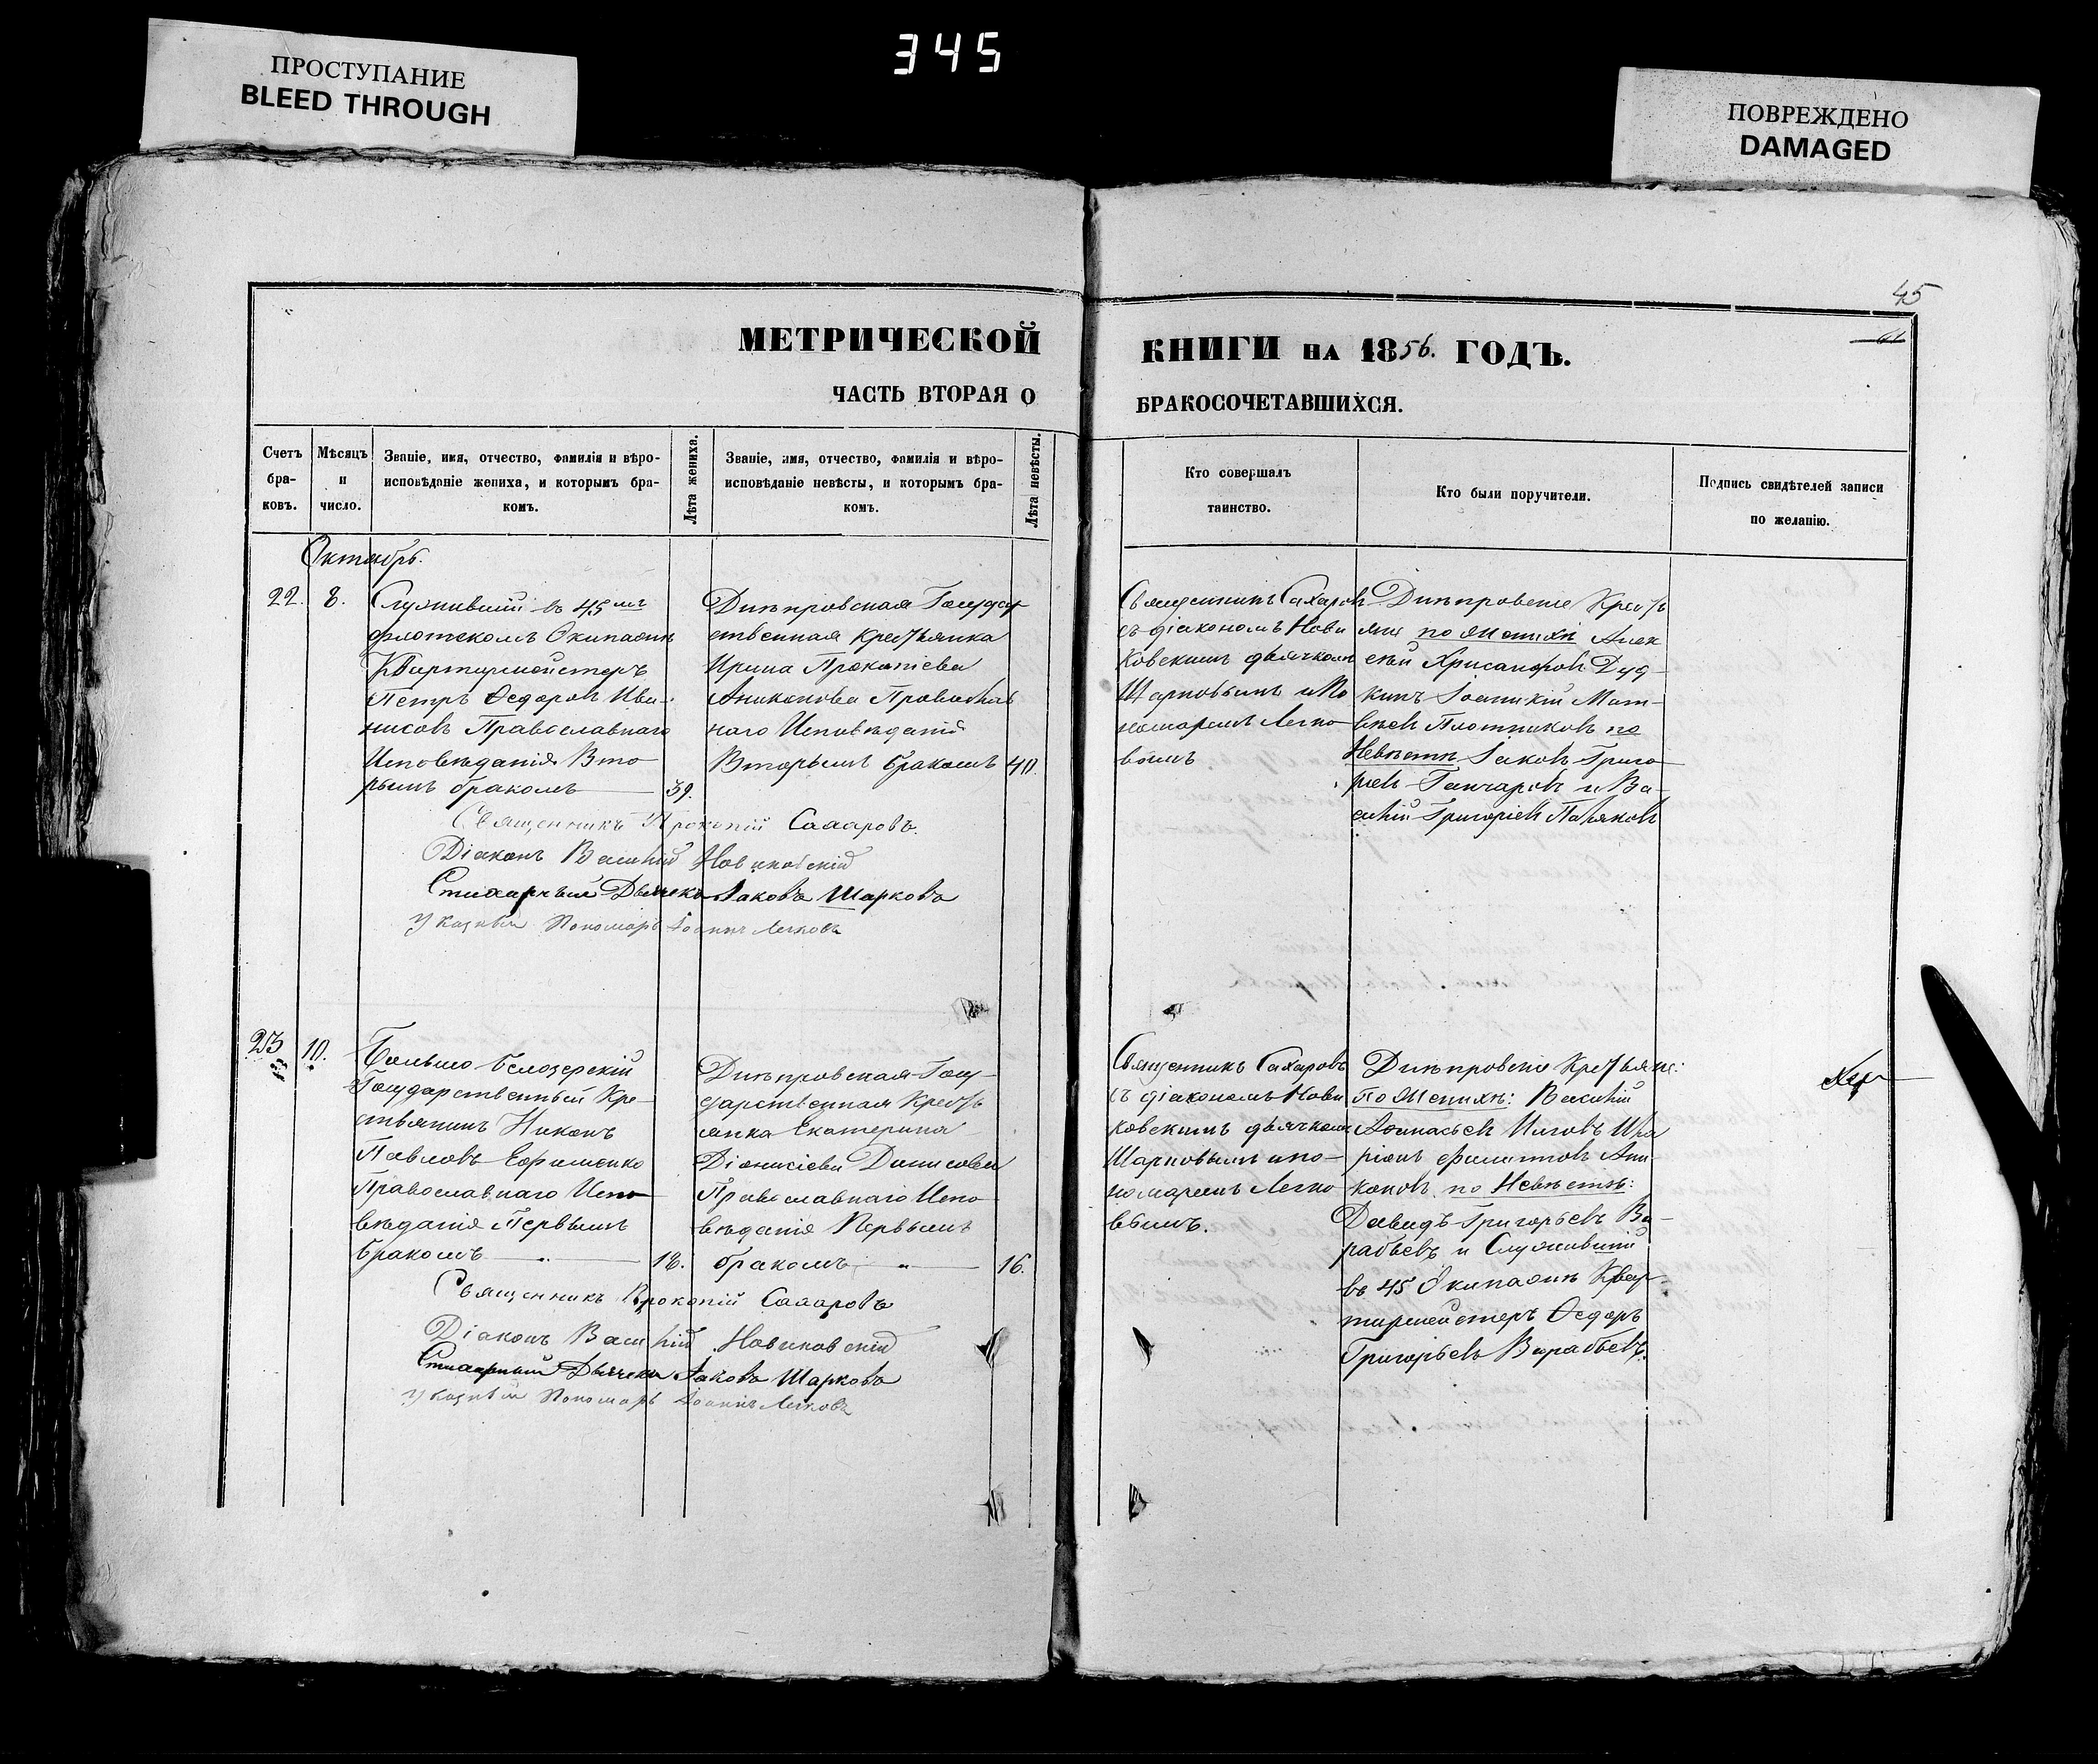 345
ПРОСТУПАНИЕ
BLEED THROUGH
ПОВРЕЖДЕНО
DAMAGED
45
МЕТРИЧЕСКОЙ КНИГИ НА 1856. ГОДЪ.
ЧАСТЬ ВТОРАЯ О БРАКОСОЧЕТАВШИХСЯ.
Счетъ
бра-
ковъ.
Мѣсяцъ
и
число.
Званіе, имя, отчество, фамилія и вѣро-
исповѣданіе жениха, и которымъ бра-
комъ.
Лѣта жениха.
Званіе, имя, отчество, фамилія и вѣро-
исповѣданіе невѣсты, и которымъ бра-
комъ.
Лѣта невѣсты.
Кто совершалъ
таинство.
Кто были поручители.
Подпись свидѣтелей записи
по желанію.
Октябрь.
22. 8.
Служившій въ 45мъ
флотскомъ Экипажѣ
Квартирмейстеръ
Петръ Ѳедоровъ
Православнаго
Исповѣданія Вто
рымъ бракомъ 39.
Днѣпровская Государ
ственная крестьянка
Ирина Прокопіева
Аниканова Православ
наго Исповѣданія
Вторымъ бракомъ 40.
Священникъ Сахаровъ
съ діакономъ Нови
ковскимъ дьячкомъ
Шарковымъ и По
номаремъ Легко
вымъ
Днѣпровскіе Кресть
яне по Женихѣ Алек
сѣй Хрисанфовъ Дуд-
кинъ Іоанникій Мат-
вѣевъ Плотниковъ по
Невѣстѣ Іаковъ Григо
рьевъ Ганчаровъ и Ва-
силій Григорьевъ Паляковъ
Священникъ Прокопій Сахаровъ.
Діаконъ Василій Новиковскій
Стихарный Дьячекъ Іаковъ Шарковъ
Указный Пономарь Іоаннъ Легковъ
23 10.
Больше-Белозерскій
Государственный Кре-
стьянинъ Никонъ
Павловъ Ефименко
Православнаго Испо
вѣданія Первымъ
бракомъ 18.
Днѣпровская Госу-
дарственная Кресть
янка Екатерина
Діонисіева Данисова
Православнаго Испо
вѣданія Первымъ
бракомъ 16.
Священникъ Сахаровъ
съ діакономъ Нови
ковскимъ дьячкомъ
Шарковымъ и по-
номаремъ Легко
вымъ.
Днѣпровскіе Крестьяне:
по Женихѣ: Василій
Аѳанасьевъ Ила
ріонъ Филиповъ Ани-
кановъ по Невѣстѣ:
Давидъ Григорьевъ Ва-
рабьевъ и Служившій
въ 45 Экипажѣ Квар-
тирмейстеръ Ѳедоръ
Григорьевъ Варабьевъ.
Священникъ Прокопій Сахаровъ
Діаконъ Василій Новиковскій
Стихарный Дьячекъ Іаковъ Шарковъ
Указный Пономарь Іоаннъ Легковъ